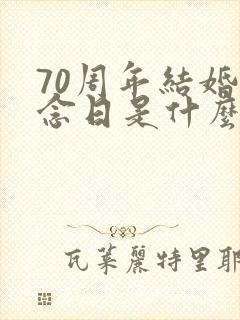 70周年結婚
念日是什麼
瓦萊麗特里耶